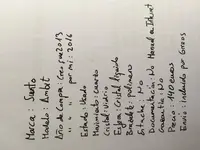 Marca: Suunto
Modelo: Ambit
Año de Compra: Creo q en 2013
" " " por mi: 2016
Estado: Usado
Movimiento: cuarzo
Cristal: vidrio
Esfera: Cristal líquido
Brazalete: polímero
Estuche: No
Documentación: No
Garantía: No
Precio: 140 euros
Envío: Incluido por Correos